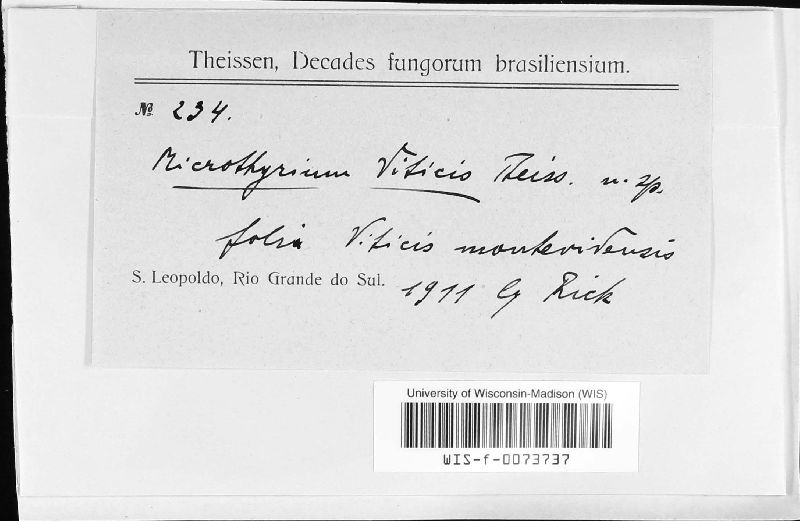 Theissen, Decades fungorum brasiliensium.
№ 234.
Microthyrium Viticis Theiss. n. sp.
folia Viticis montevidensis
S. Leopoldo, Rio Grande do Sul. 1911 lg Rick
University of Wisconsin-Madison (WIS)
WIS-f-0073737